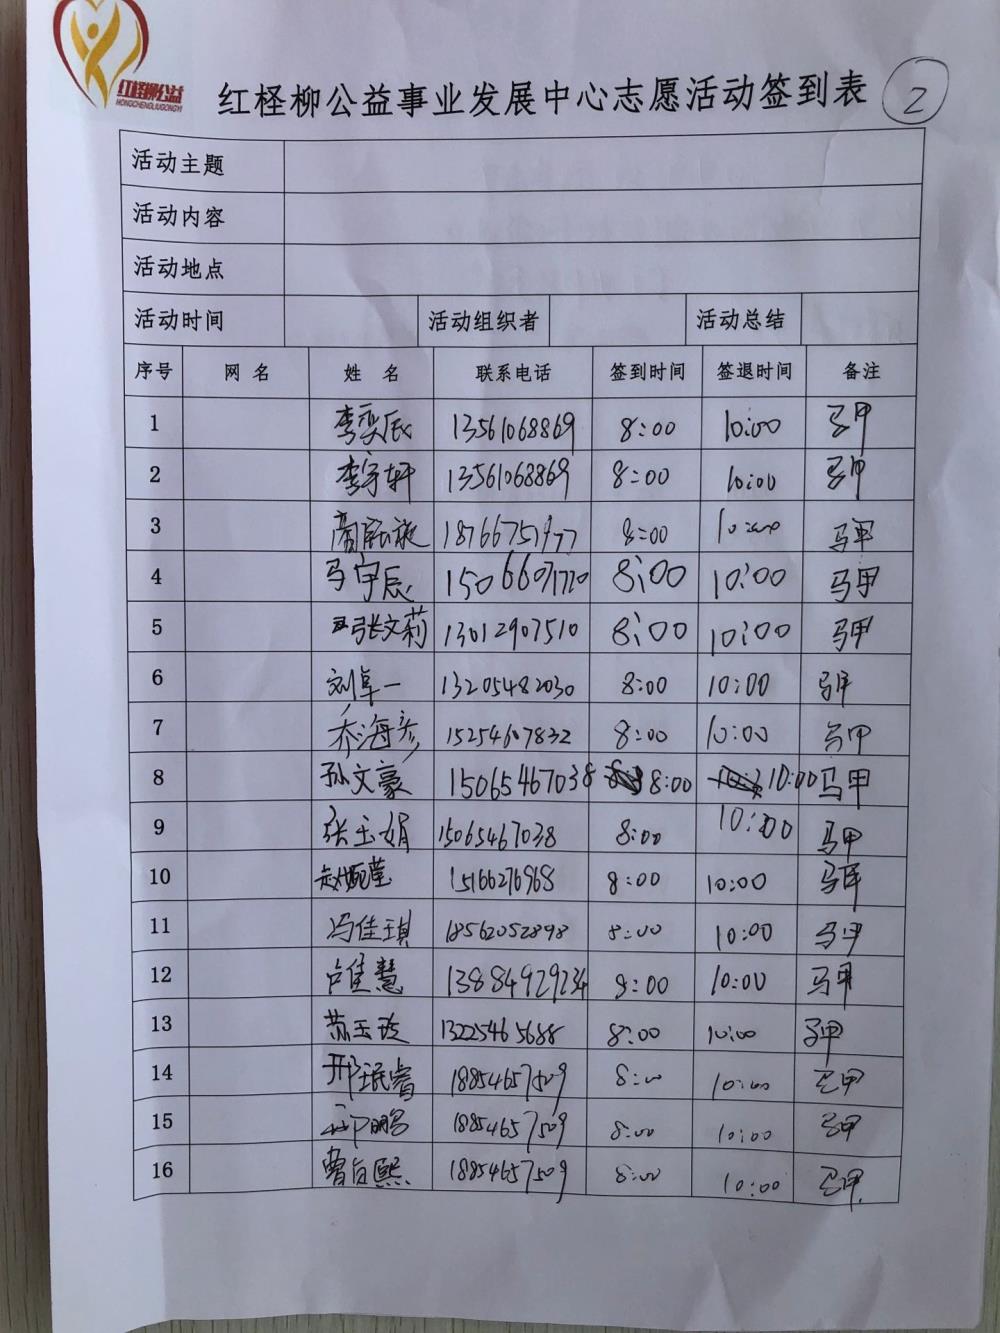 红柽柳公益
HONGCHENGLIUGONGYI
红柽柳公益事业发展中心志愿活动签到表 2
活动主题
活动内容
活动地点
活动时间 活动组织者 活动总结
序号 网名 姓名 联系电话 签到时间 签退时间 备注
1 李奕辰 13561068869 8:00 10:00 马甲
2 李宇轩 13561068869 8:00 10:00 马甲
3 18766757977 8:00 10:00 马甲
4 马宁辰 15066071770 8:00 10:00 马甲
5 张文莉 13012907510 8:00 10:00 马甲
6 刘卓一 13205482030 8:00 10:00 马甲
7 乔海彦 15254607832 8:00 10:00 马甲
8 孙文豪 15065467038 8:00 10:00 马甲
9 张玉娟 15065467038 8:00 10:00 马甲
10 赵婉莹 15166276968 8:00 10:00 马甲
11 冯佳琪 18562052898 8:00 10:00 马甲
12 卢佳慧 13884929234 8:00 10:00 马甲
13 苏玉玲 13225465688 8:00 10:00 马甲
14 邢珉睿 18854657509 8:00 10:00 马甲
15 18854657509 8:00 10:00 马甲
16 18854657509 8:00 10:00 马甲